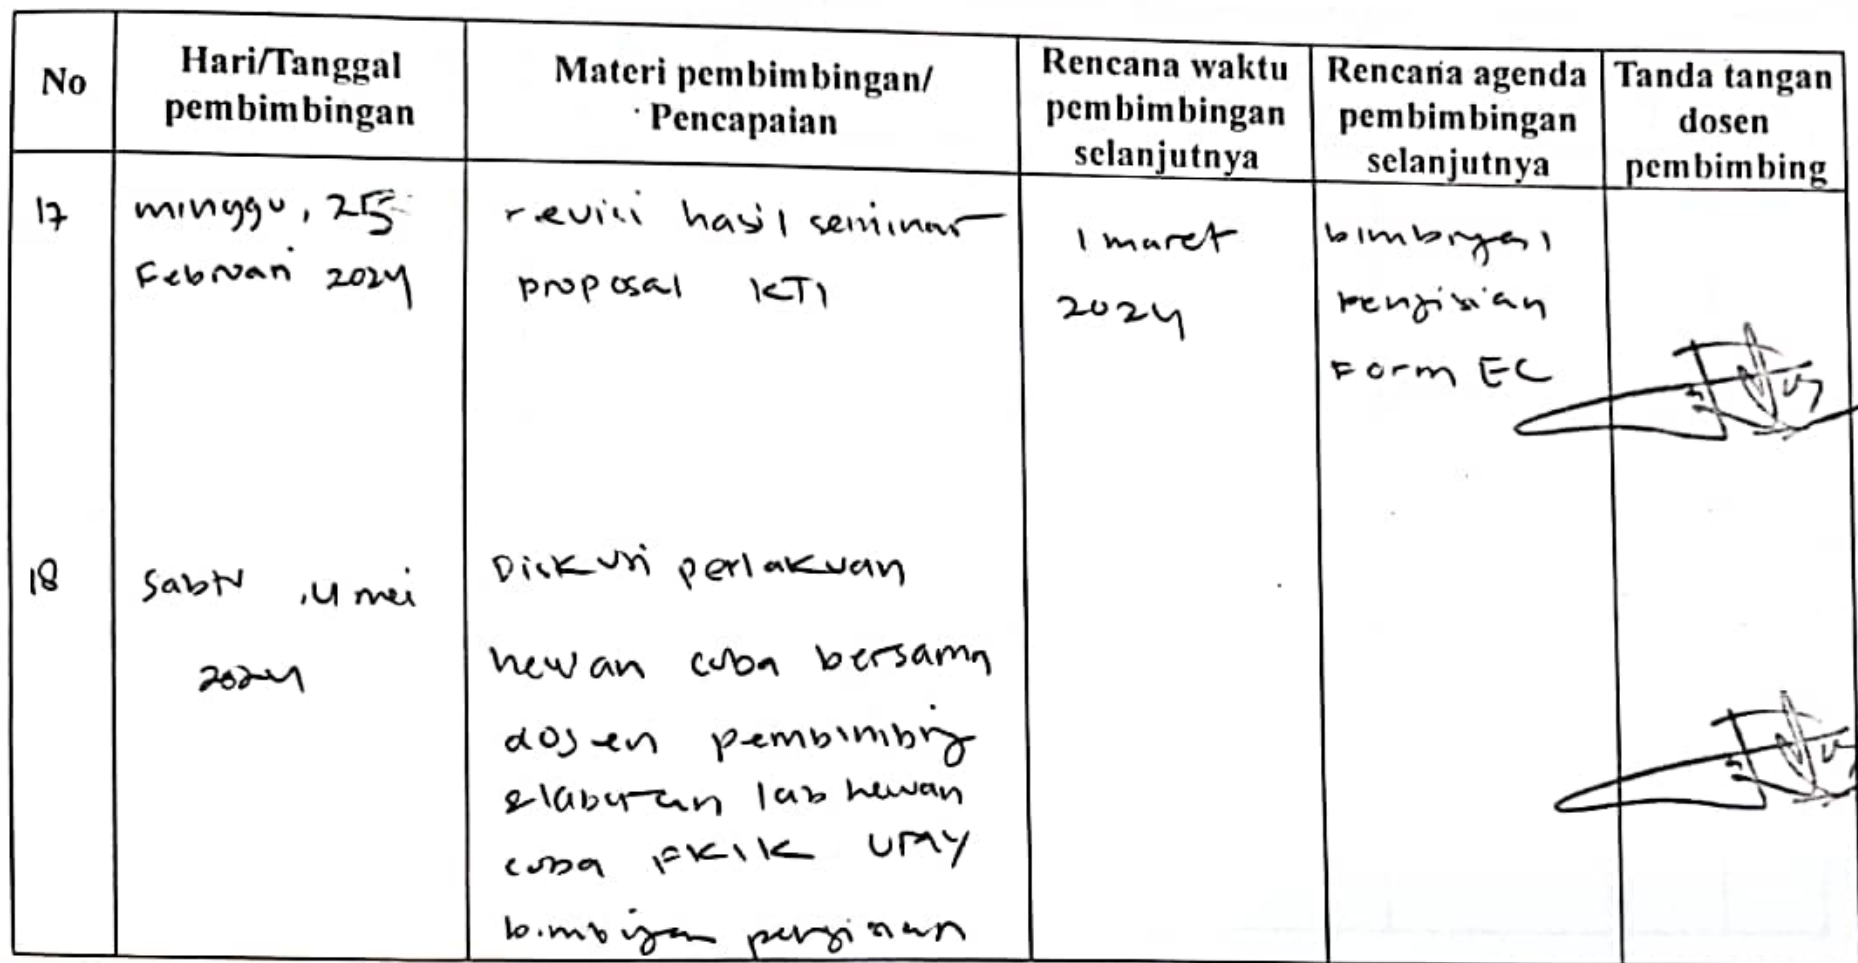 No
Hari/Tanggal
pembimbingan
Materi pembimbingan/
Pencapaian
Rencana waktu
pembimbingan
selanjutnya
Rencana agenda
pembimbingan
selanjutnya
Tanda tangan
dosen
pembimbing
17
minggu, 25
Februari 2024
revisi hasil seminar
proposal KTI
1 maret
2024
bimbingan
pengisian
Form EC
18
Sabtu, 4 mei
2024
Diskusi perlakuan
hewan coba bersama
dosen pembimbing
& laboran lab hewan
coba FKIK UMY
bimbingan